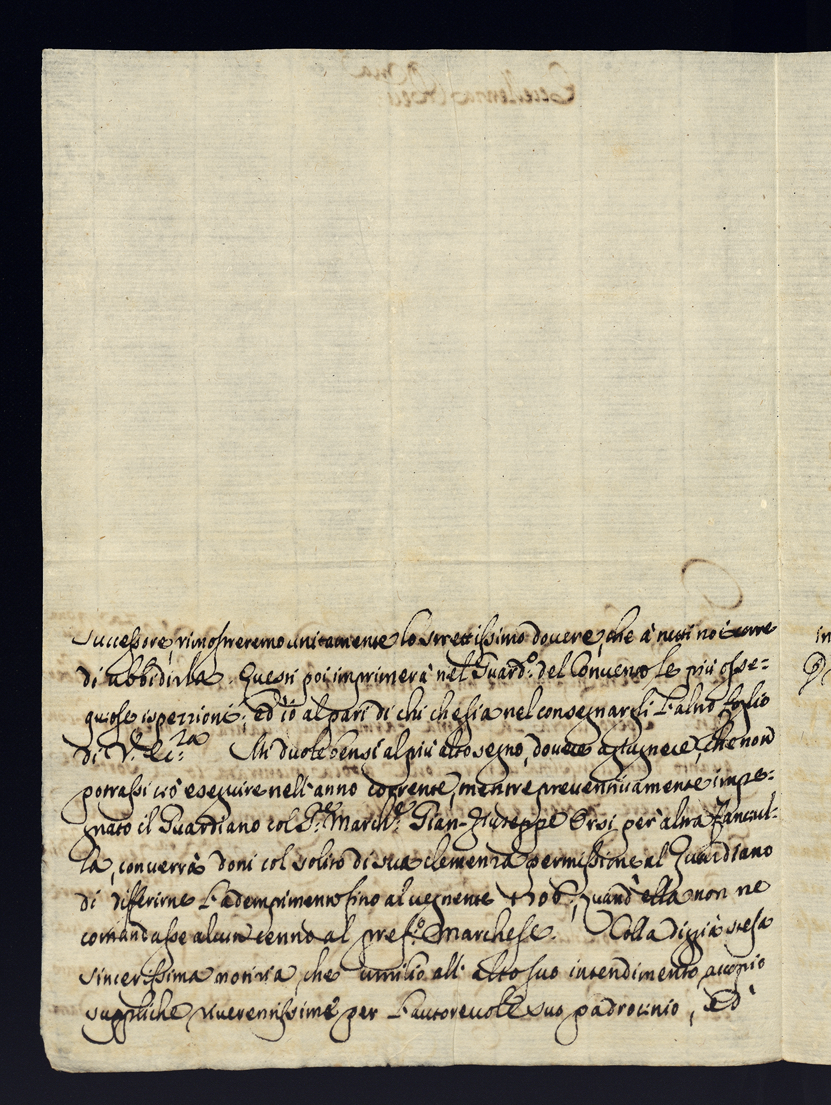 successore, rimostreremo unitamente lo strettissimo douere, che à noi
di ubbidirla. Questi poi imprimerà nel Guard.º del Conuento le più osse=
quiose ispezzioni; ed iò al pari di chi che sia nel consegnargli l'altro foglio
di V. Ecc.za Mi duole bensi al più alto segno, douere aggiugnere, che non
potrassi ciò eseguire nell'anno corrente, mentre preuentiuamente impe=
gnato il Guardiano col S.r March.e Gian-Giuseppe Orsi per altra fanciul=
la, conuerrà doni col solito di sua clemenza permissione al Guardiano
di differirne l'adempimento fino al uegnente 1706, quand'ella non ne
comandasse alcun cenno al pref.º Marchese. Colla di già stesa
sincerissima notizia, che umilio all'alto suo intendimento, accoppio
suppliche riuerentissime per l'autoreuole suo padrocinio, ed
in